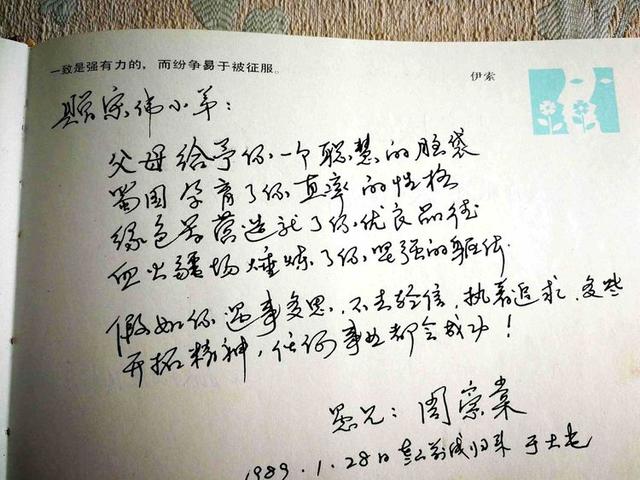 一致是强有力的，而纷争易于被征服。
伊索
赠宗伟小弟：
父母给予你一个聪慧的脑袋
蜀国孕育了你直率的性格
绿色军营造就了你优良品德
血火疆场煅炼了你坚强的躯体
假如你遇事多思，不去轻信，执着追求，多些
开拓精神，任何事业都会成功！
愚兄：周宗棠
1989.1.28日 前线归来 于大老